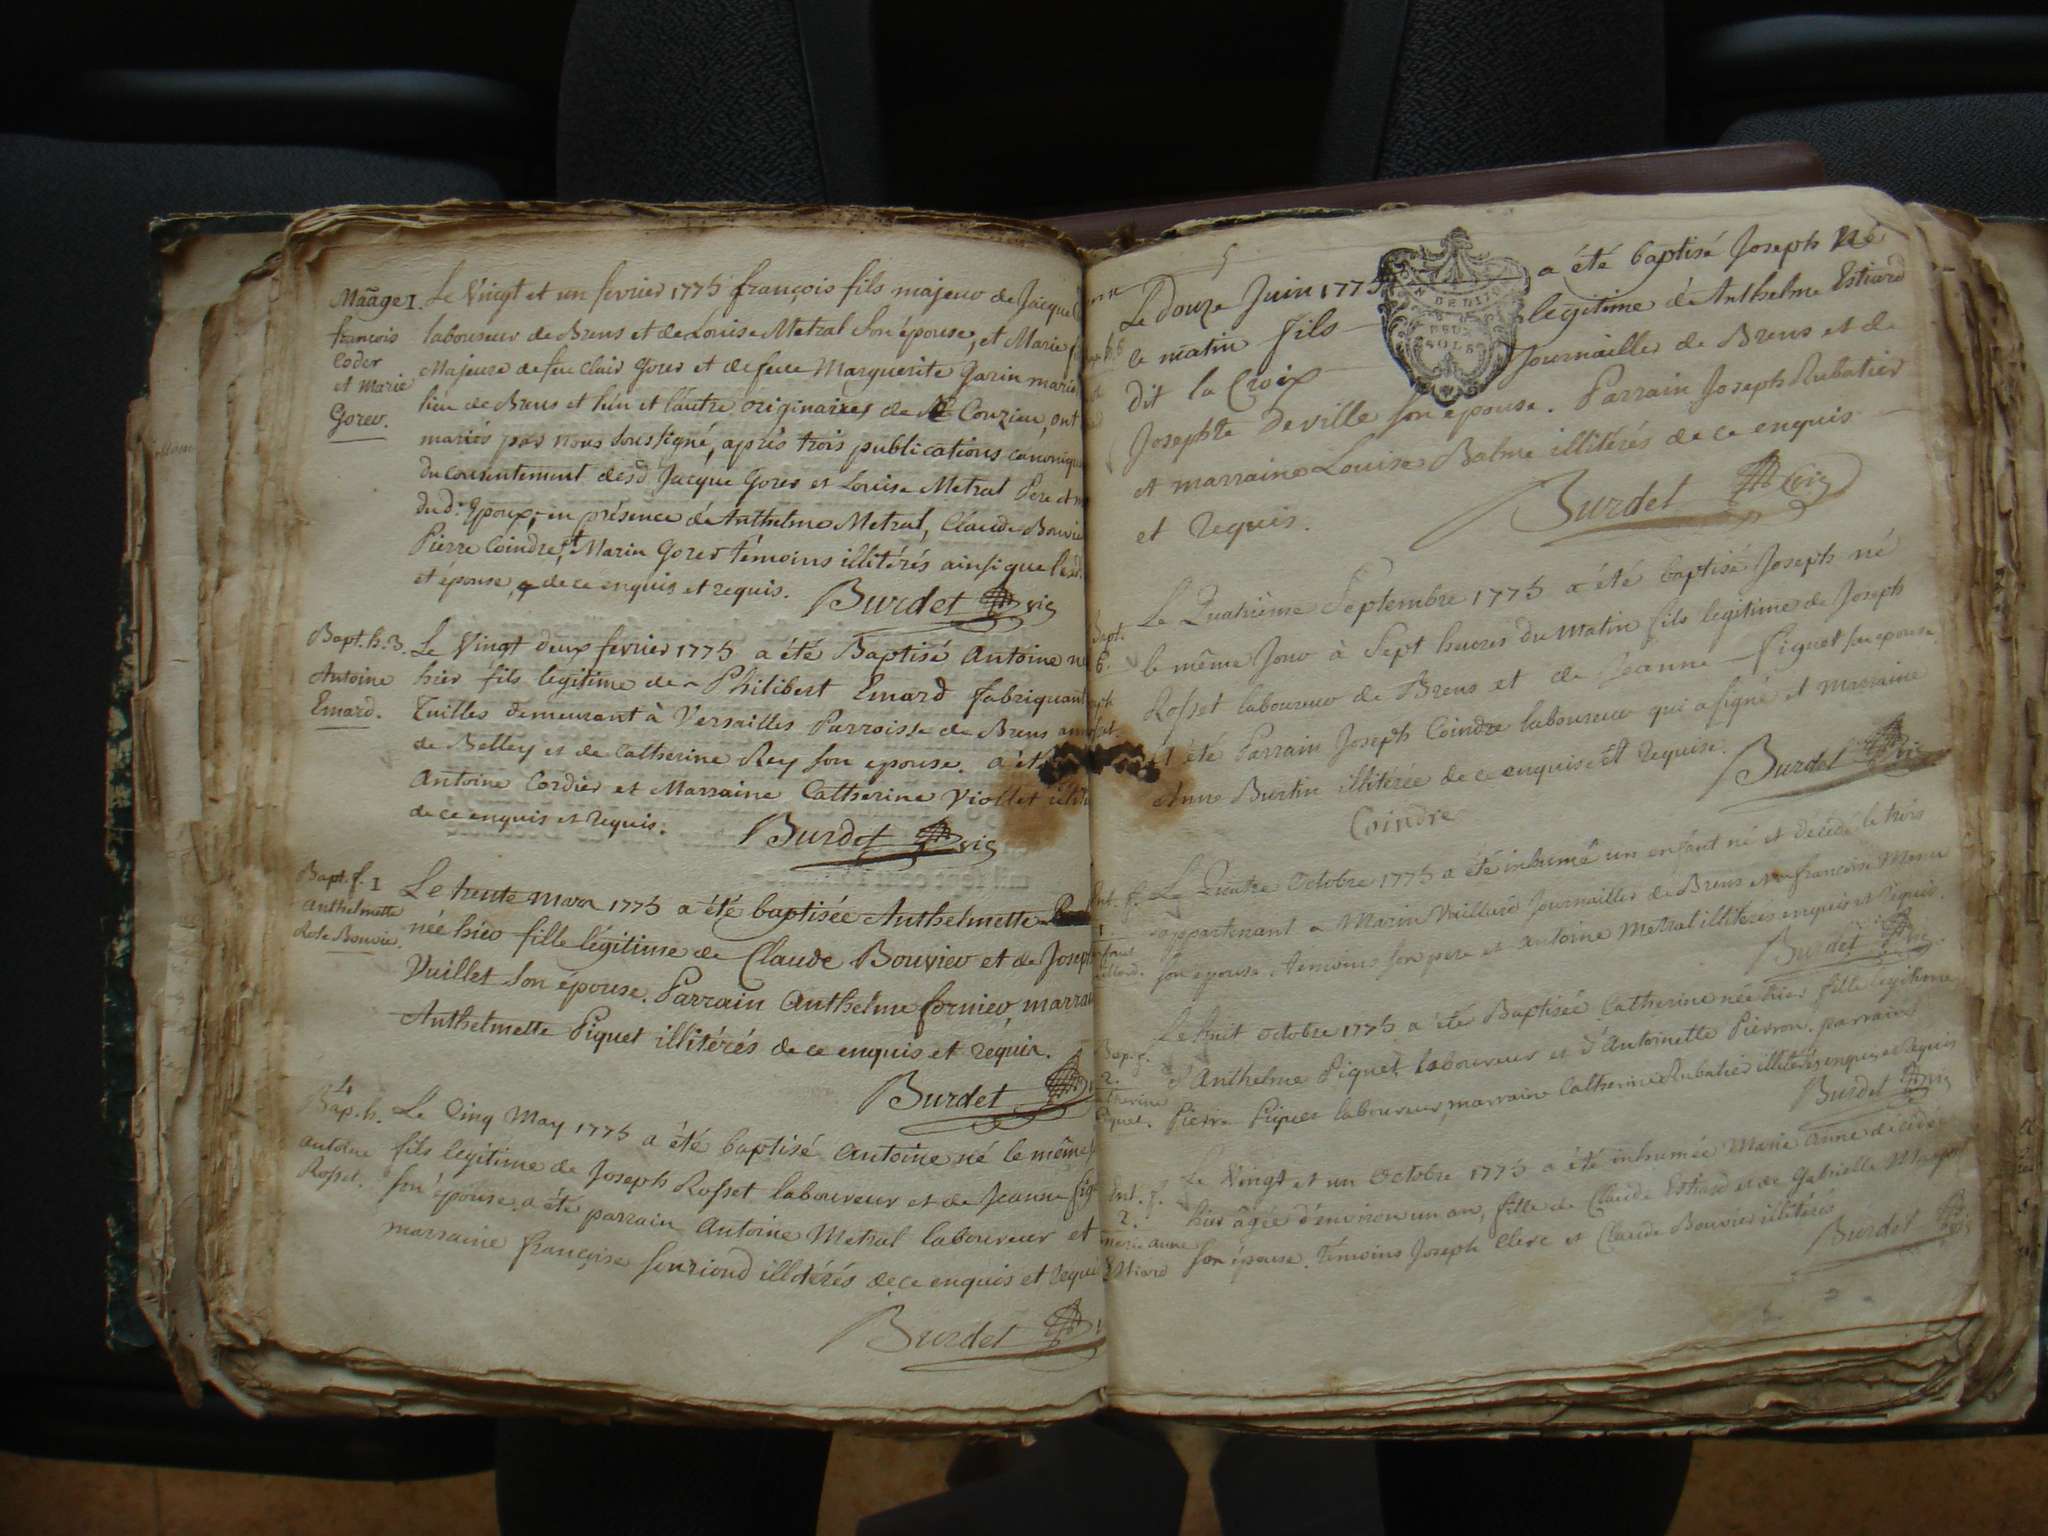 Mãage 1.
françois
Coder
et Marie
Gorer.
Le Vingt et un fevrier 1775 françois fils majeur de Jacque
laboureur de Brens et de Louise Metral son épouse, et Marie
Majeure de feu Clair Gorer et de feue Marguerite Garin
lieu de Brens et l'un et l'autre originaires de Conzieu, ont
mariés par nous soussigné, après trois publications
du consentement desd Jacque Gorer et Louise Metral Père et
dud. Epoux, en présence de Anthelme Metral, Claude
Pierre Coindre, et Marin Gorer témoins illitérés ainsi que
et épouse, de ce enquis et requis. Burdet vic
Bapt. h. 3.
Antoine
Emard.
Le Vingt deux fevrier 1775 a été Baptisé Antoine
hier fils legitime de Philibert Emard fabriquant
Tuilles demeurant à Versailles Parroisse de Brens
de Belley et de Catherine Rey son epouse. a
Antoine Cordier et Marraine Catherine Viollet
de ce enquis et requis. Burdet vic
Bapt. f. 1
Anthelmette
Bouvier.
Le trente Mars 1775 a été baptisée Anthelmette
née hier fille légitime de Claude Bouvier et de
Vuillet son épouse. Parrain Anthelme fornier,
Anthelmette Piquet illitérés de ce enquis et requis.
Burdet
Bap. h. 4
Antoine
Rosset.
Le Cinq May 1775 a été baptisé Antoine né le même
fils legitime de Joseph Rosset laboureur et de Jeanne
son épouse, a été parrain Antoine Metral laboureur et
marraine françoise illitérés de ce enquis et
Burdet
5
Le douze Juin 1775 a été baptisé Joseph né
le matin fils legitime d'Anthelme Estiard
dit la Croix Journallier de Brens et de
Josephte Deville son épouse. Parrain Joseph Rubatier
et marraine Louise Balme illitérés de ce enquis
et requis. Burdet vic
DEUX
SOLS
Bapt.
6.
Le Quatrième Septembre 1775 a été baptisé Joseph né
le même Jour à Sept heures du matin fils legitime de Joseph
Rosset laboureur de Brens et de Jeanne Piguet son epouse
été Parrain Joseph Coindre laboureur qui a signé et marraine
Anne Burtin illitérée de ce enquise et requise. Burdet vic
Coindre
Ent. f.
1.
Le Quatre Octobre 1775 a été inhumé un enfant né et décédé le trois
appartenant a Marin Vuillard Journallier de Brens et françoise
son épouse, temoins son pere et Antoine Metral illitéres enquis et requis.
Burdet vic
Bap. f.
2.
Catherine
Piquet.
Le huit octobre 1775 a été Baptisée Catherine née hier fille legitime
d'Anthelme Piquet laboureur et d'Antoinette Pierron. parrain
Pierre Piquet laboureur, marraine Catherine Rubatier illitérés enquis et requis
Burdet vic
Ent. f.
2.
marie anne
Estiard
Le Vingt et un Octobre 1775 a été inhumée Marie Anne décédée
hier âgée d'environ un an, fille de Claude Estiard et de Gabrielle
son épouse. Témoins Joseph Clerc et Claude Bouvier illitérés
Burdet vic